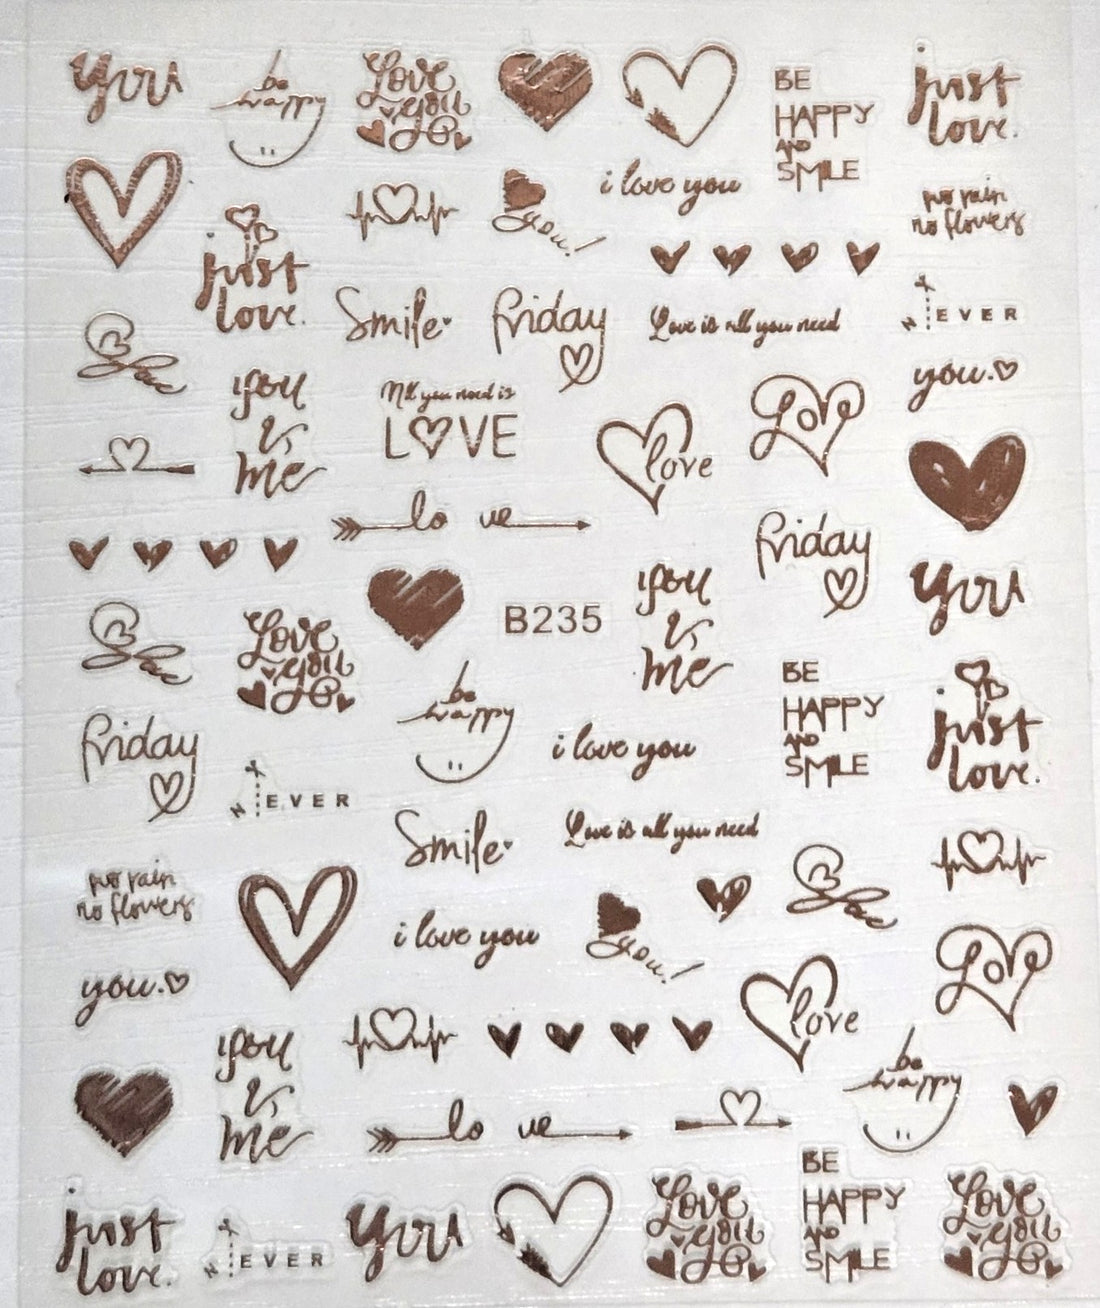 you
be
happy
Love
you
BE
HAPPY
AND
SMILE
just
love.
i love you
you!
no rain
no flowers
just
love.
Smile
friday
Love is all you need
NEVER
Love
you
&
me
All you need is
LOVE
love
Love
you.
lo ve
friday
you
B235
you
&
me
Love
Love
you
be
happy
BE
HAPPY
AND
SMILE
just
love.
friday
i love you
NEVER
Smile
Love is all you need
no rain
no flowers
Love
i love you
you!
Love
you.
love
you
&
me
be
happy
lo ve
BE
HAPPY
AND
SMILE
just
love.
NEVER
you
Love
you
Love
you